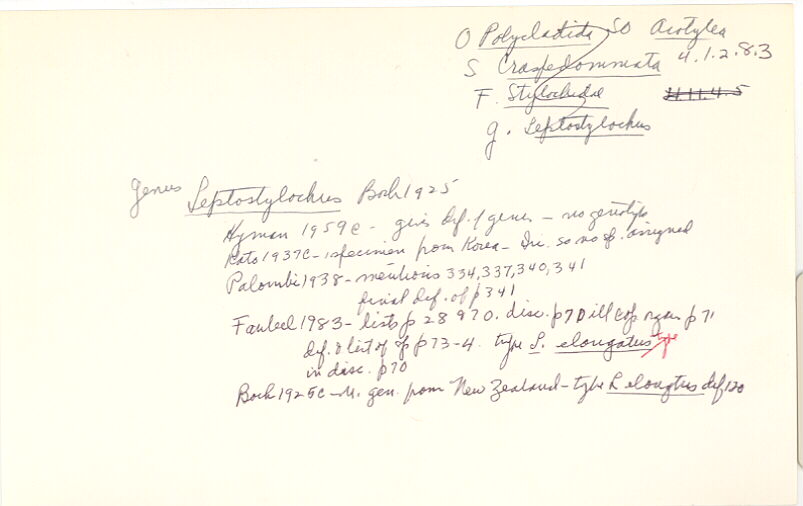 O Polycladida SO Acotylea
S Craspedommata 4.1.2.8.3
F. Stylochidae 4.11.4.5
g. Leptostylochus
genus Leptostylochus Bock 1925
Hyman 1959e - gives def. of genus - no genotype
Kato 1937c - 1 specimen from Korea - Im. so no sp. assigned
Palombi 1938 - mentions 334, 337, 340, 341
final def. of p 341
Faubel 1983 - lists p 28 970. disc. p70 ill cop organ p 71
def. & list of sp p 73-4. type L. elongatus
in disc. p70
Bock 1925c - n. gen. from New Zealand - type L elongtus def 120